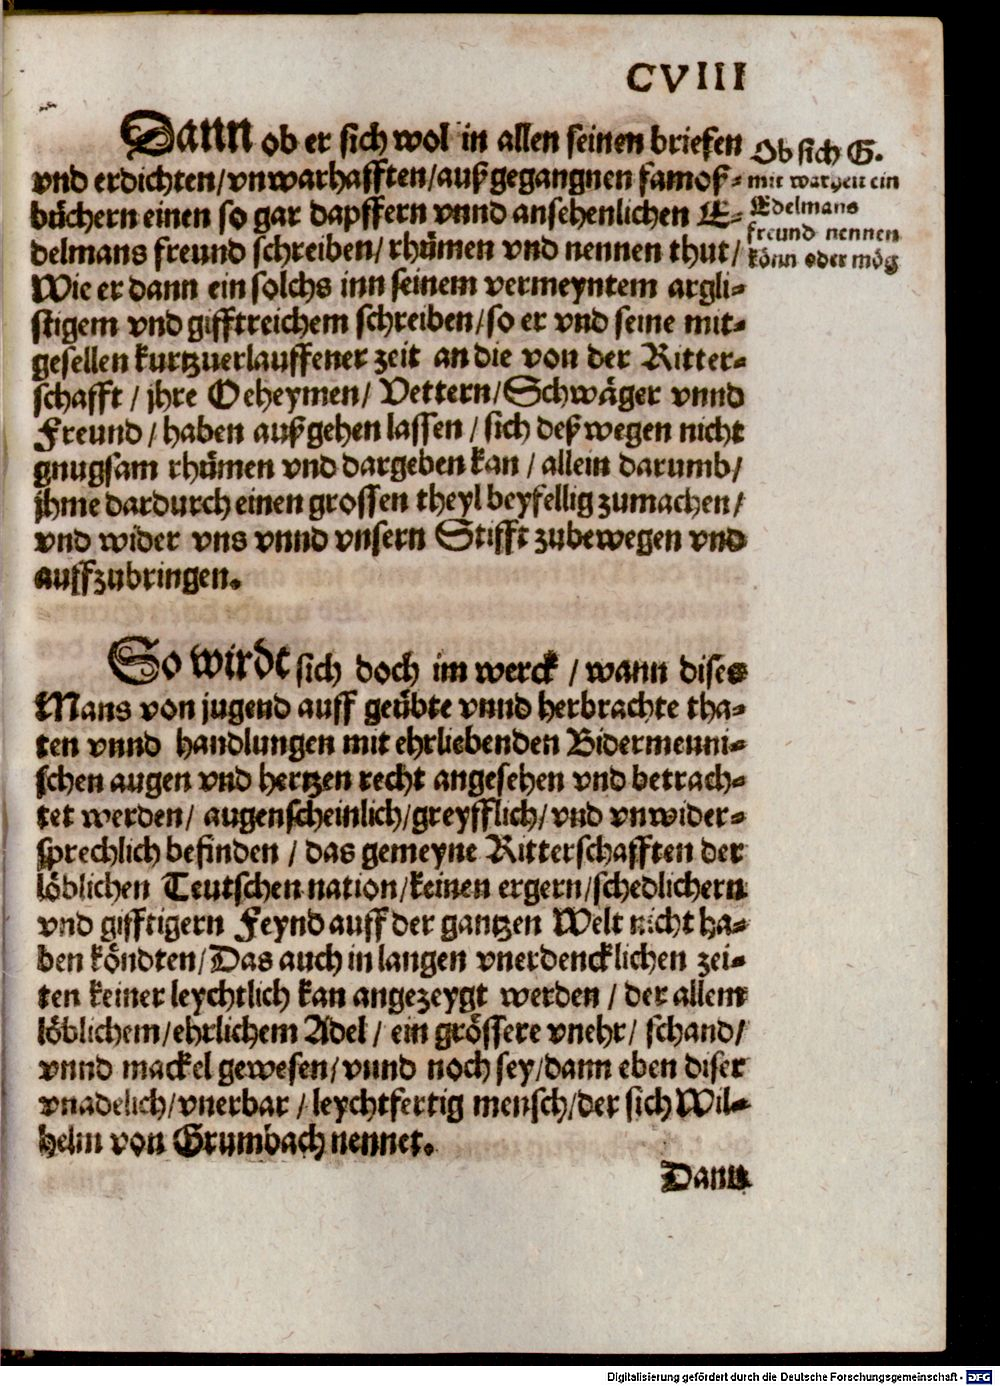 CVIII
Dann ob er sich wol in allen seinen briefen
vnd erdichten/vnwarhafften/außgegangnen famoß-
büchern einen so gar dapffern vnnd ansehenlichen E-
delmans freund schreiben/rhümen vnd nennen thut/
Wie er dann ein solchs inn seinem vermeyntem argli-
stigem vnd gifftreichem schreiben/so er vnd seine mit-
gesellen kurtzuerlauffener zeit an die von der Ritter-
schafft/jhre Oeheymen/Vettern/Schwäger vnnd
Freund/haben außgehen lassen/sich deßwegen nicht
gnugsam rhümen vnd dargeben kan/allein darumb/
jhme dardurch einen grossen theyl beyfellig zumachen/
vnd wider vns vnnd vnsern Stifft zubewegen vnd
auffzubringen.
Ob sich G.
mit warheit ein
Edelmans
freund nennen
könn oder mög
So wirdt sich doch im werck/wann dises
Mans von jugend auff geübte vnnd herbrachte tha-
ten vnnd handlungen mit ehrliebenden Bidermenni-
schen augen vnd hertzen recht angesehen vnd betrach-
tet werden/augenscheinlich/greyfflich/vnd vnwider-
sprechlich befinden/das gemeyne Ritterschafften der
löblichen Teutschen nation/keinen ergern/schedlichern
vnd gifftigern Feynd auff der gantzen Welt nicht ha-
ben köndten/Das auch in langen vnerdencklichen zei-
ten keiner leychtlich kan angezeygt werden/der allem
löblichem/ehrlichem Adel/ein grössere vnehr/schand/
vnnd mackel gewesen/vnnd noch sey/dann eben diser
vnadelich/vnerbar/leychtfertig mensch/der sich Wil-
helm von Grumbach nennet.
Dann
Digitalisierung gefördert durch die Deutsche Forschungsgemeinschaft - DFG